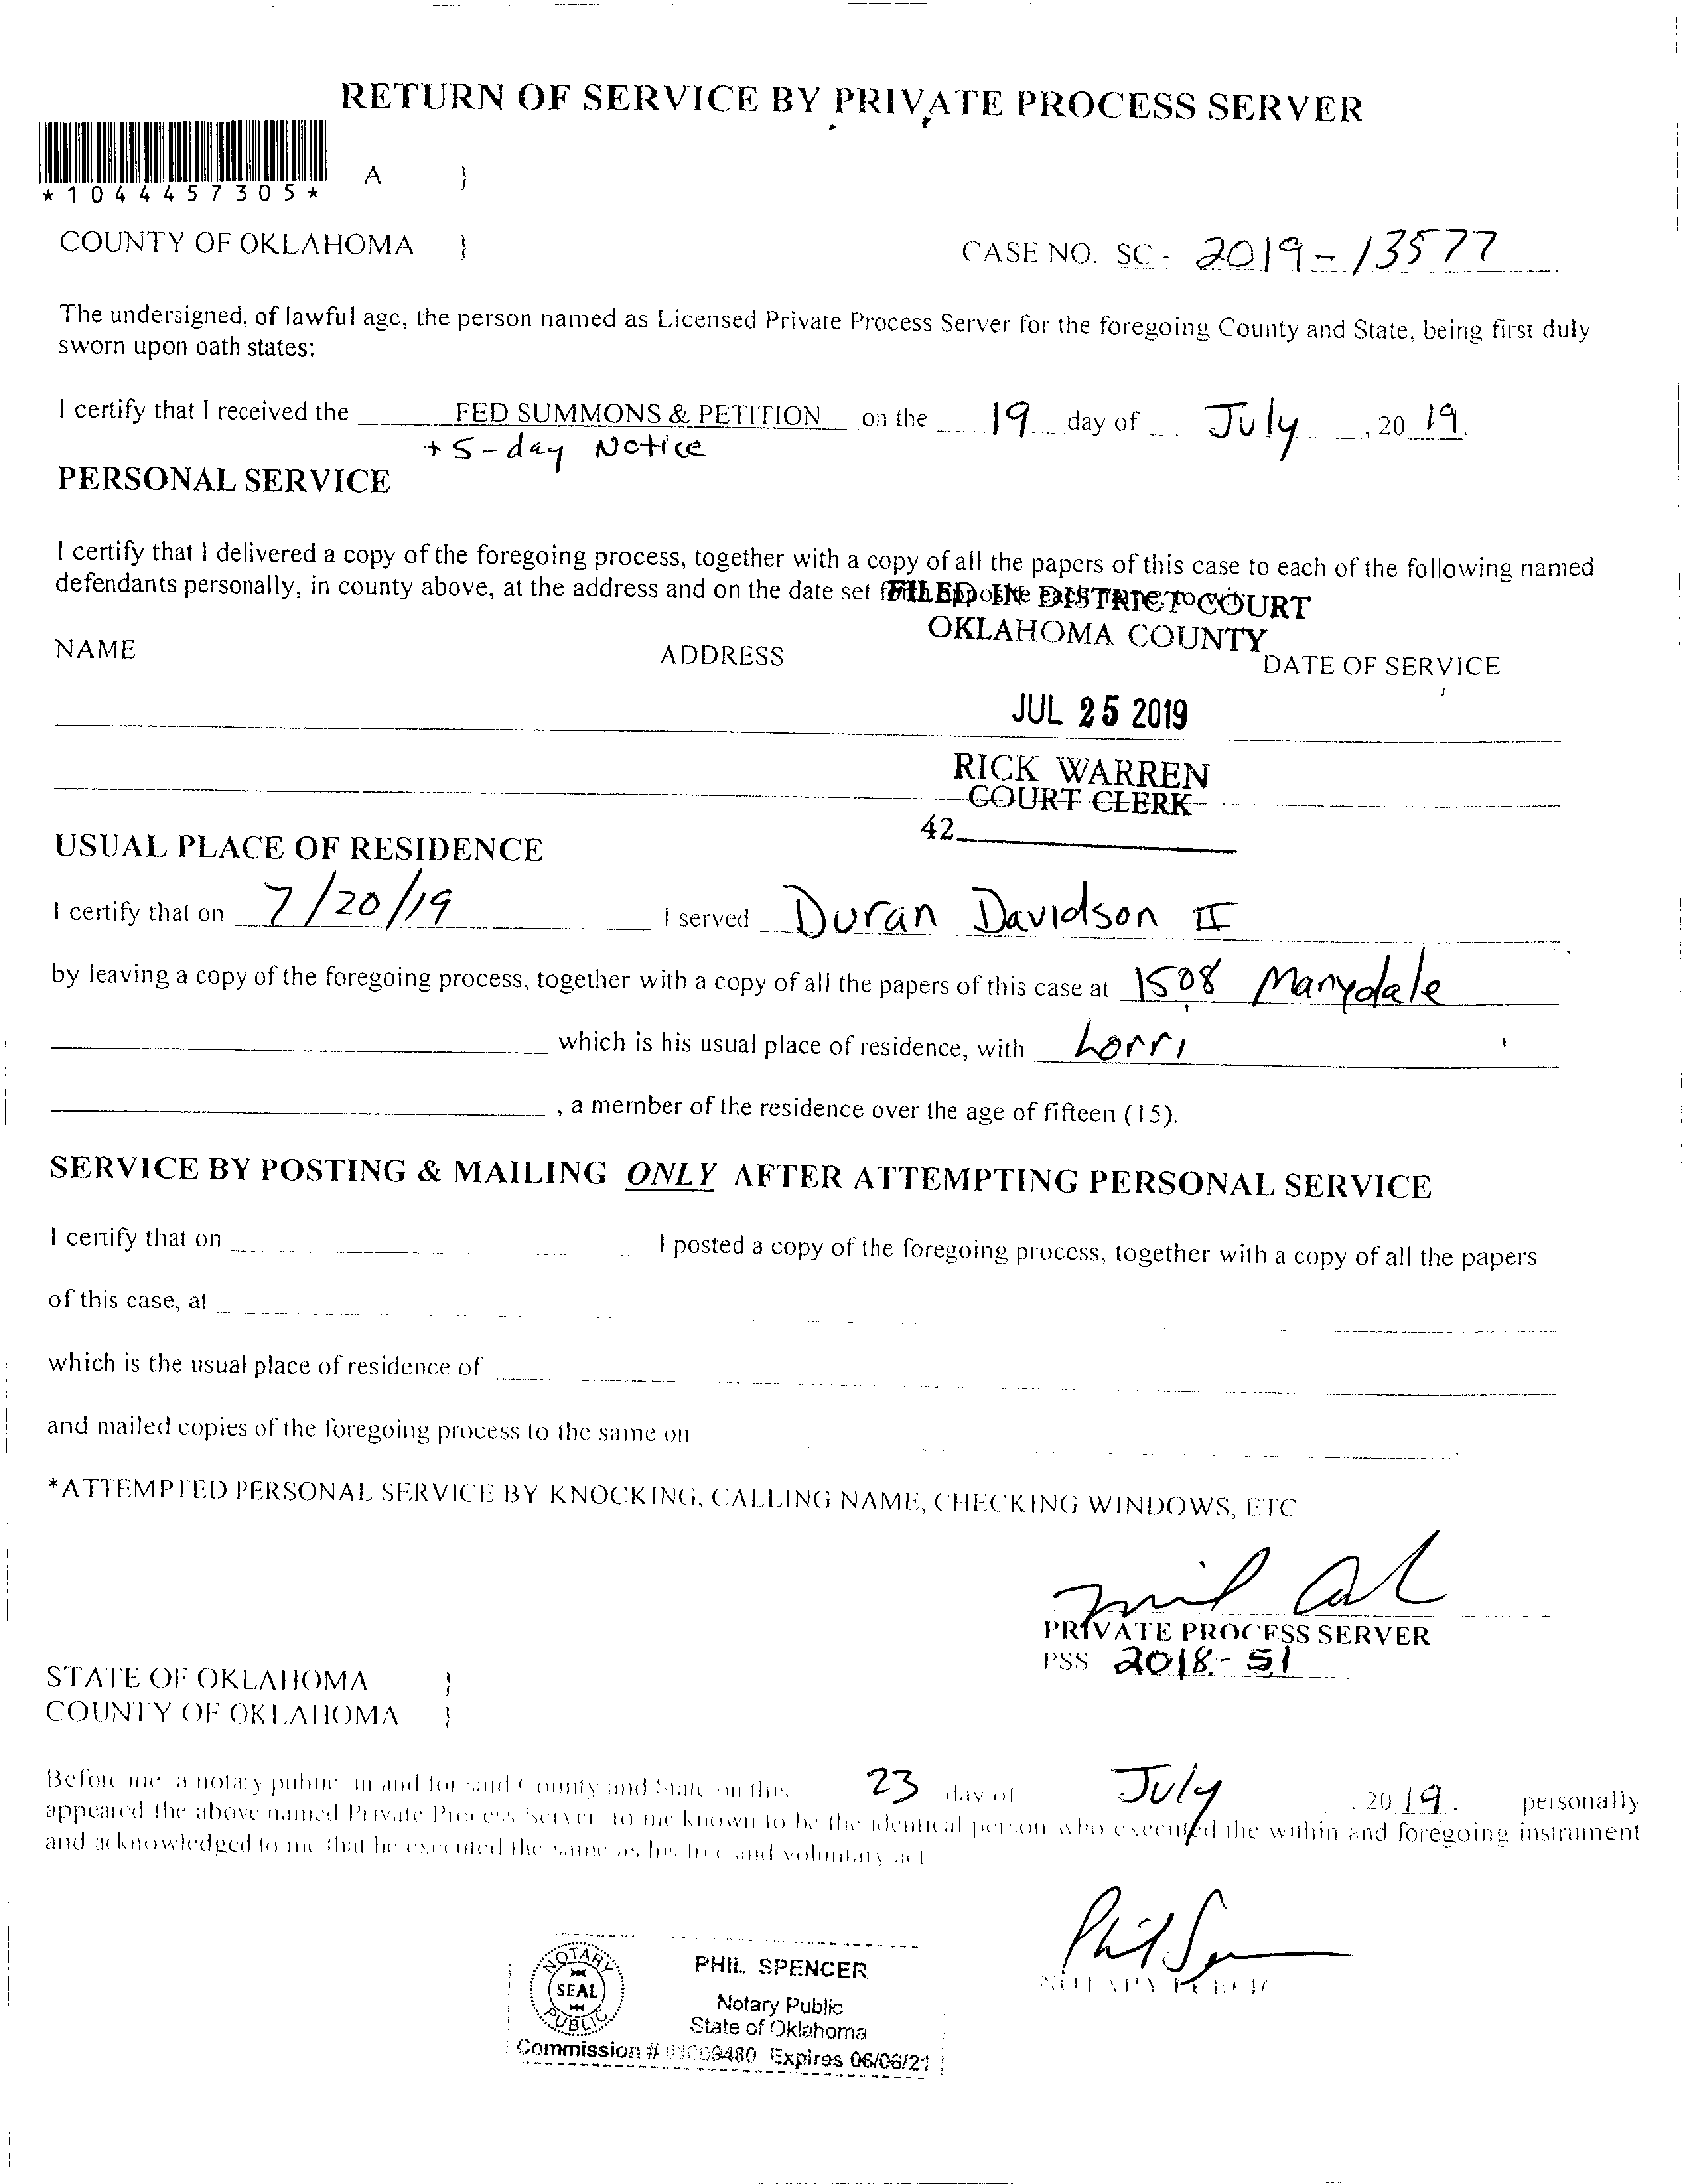 RETURN OF SERVICE BY PRIVATE PROCESS SERVER
*1044457305*
A }
COUNTY OF OKLAHOMA } CASE NO. SC- 2019-13577
The undersigned, of lawful age, the person named as Licensed Private Process Server for the foregoing County and State, being first duly
sworn upon oath states:
I certify that I received the FED SUMMONS & PETITION on the 19 day of July, 20 19.
+ 5-day Notice
PERSONAL SERVICE
I certify that I delivered a copy of the foregoing process, together with a copy of all the papers of this case to each of the following named
defendants personally, in county above, at the address and on the date set
FILED IN DISTRICT COURT
OKLAHOMA COUNTY
NAME ADDRESS DATE OF SERVICE
JUL 25 2019
RICK WARREN
COURT CLERK
42
USUAL PLACE OF RESIDENCE
I certify that on 7/20/19 I served Duran Davidson II
by leaving a copy of the foregoing process, together with a copy of all the papers of this case at 1508 Marydale
which is his usual place of residence, with Lorri
, a member of the residence over the age of fifteen (15).
SERVICE BY POSTING & MAILING ONLY AFTER ATTEMPTING PERSONAL SERVICE
I certify that on I posted a copy of the foregoing process, together with a copy of all the papers
of this case, at
which is the usual place of residence of
and mailed copies of the foregoing process to the same on
*ATTEMPTED PERSONAL SERVICE BY KNOCKING, CALLING NAME, CHECKING WINDOWS, ETC.
PRIVATE PROCESS SERVER
PSS 2018-51
STATE OF OKLAHOMA }
COUNTY OF OKLAHOMA }
Before me a notary public in and for said County and State on this 23 day of July, 20 19. personally
appeared the above named Private Process Server to me known to be the identical person who executed the within and foregoing instrument
and acknowledged to me that he executed the same as his free and voluntary act
Phil S
NOTARY PUBLIC
NOTARY SEAL PUBLIC
PHIL SPENCER
Notary Public
State of Oklahoma
Commission # Expires 06/06/21